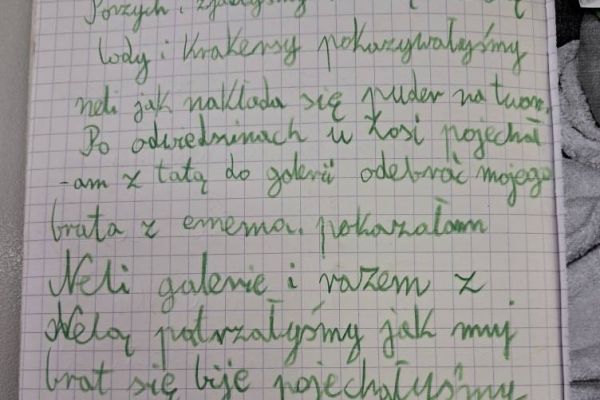 Porzych i zjadłyśmy
lody i krakersy pokazywałyśmy
neli jak nakłada się puder na twarz.
Po odwiedzinach u Zosi pojechał
-am z tatą do galerii odebrać mojego
brata z emema. pokazałam
Neli galerie i razem z
Nelą patrzałyśmy jak muj
brat się bije pojechałyśmy